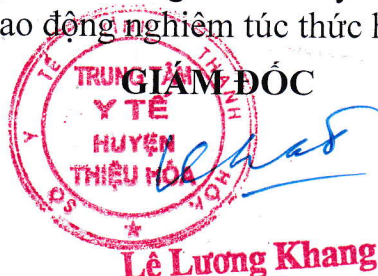 ao động nghiêm túc thức h
GIÁM ĐỐC
SỞ Y TẾ THANH HÓA
TRUNG TÂM
Y TẾ
HUYỆN
THIỆU HÓA
Lê Lương Khang